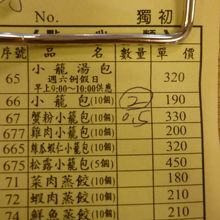 No. 獨初
序號 品名 數量 單價
65 小籠湯包 320
週六例假日
早上9:00～10:00供應
66 小籠包(10個) 2 190
67 蟹粉小籠包(10個) 0.5 330
677 雞肉小籠包(10個) 200
665 絲瓜蝦仁小籠包(10個) 320
675 松露小籠包(5個) 450
71 菜肉蒸餃(10個) 180
72 蝦肉蒸餃(10個) 210
74 鮮魚蒸餃(10個) 210